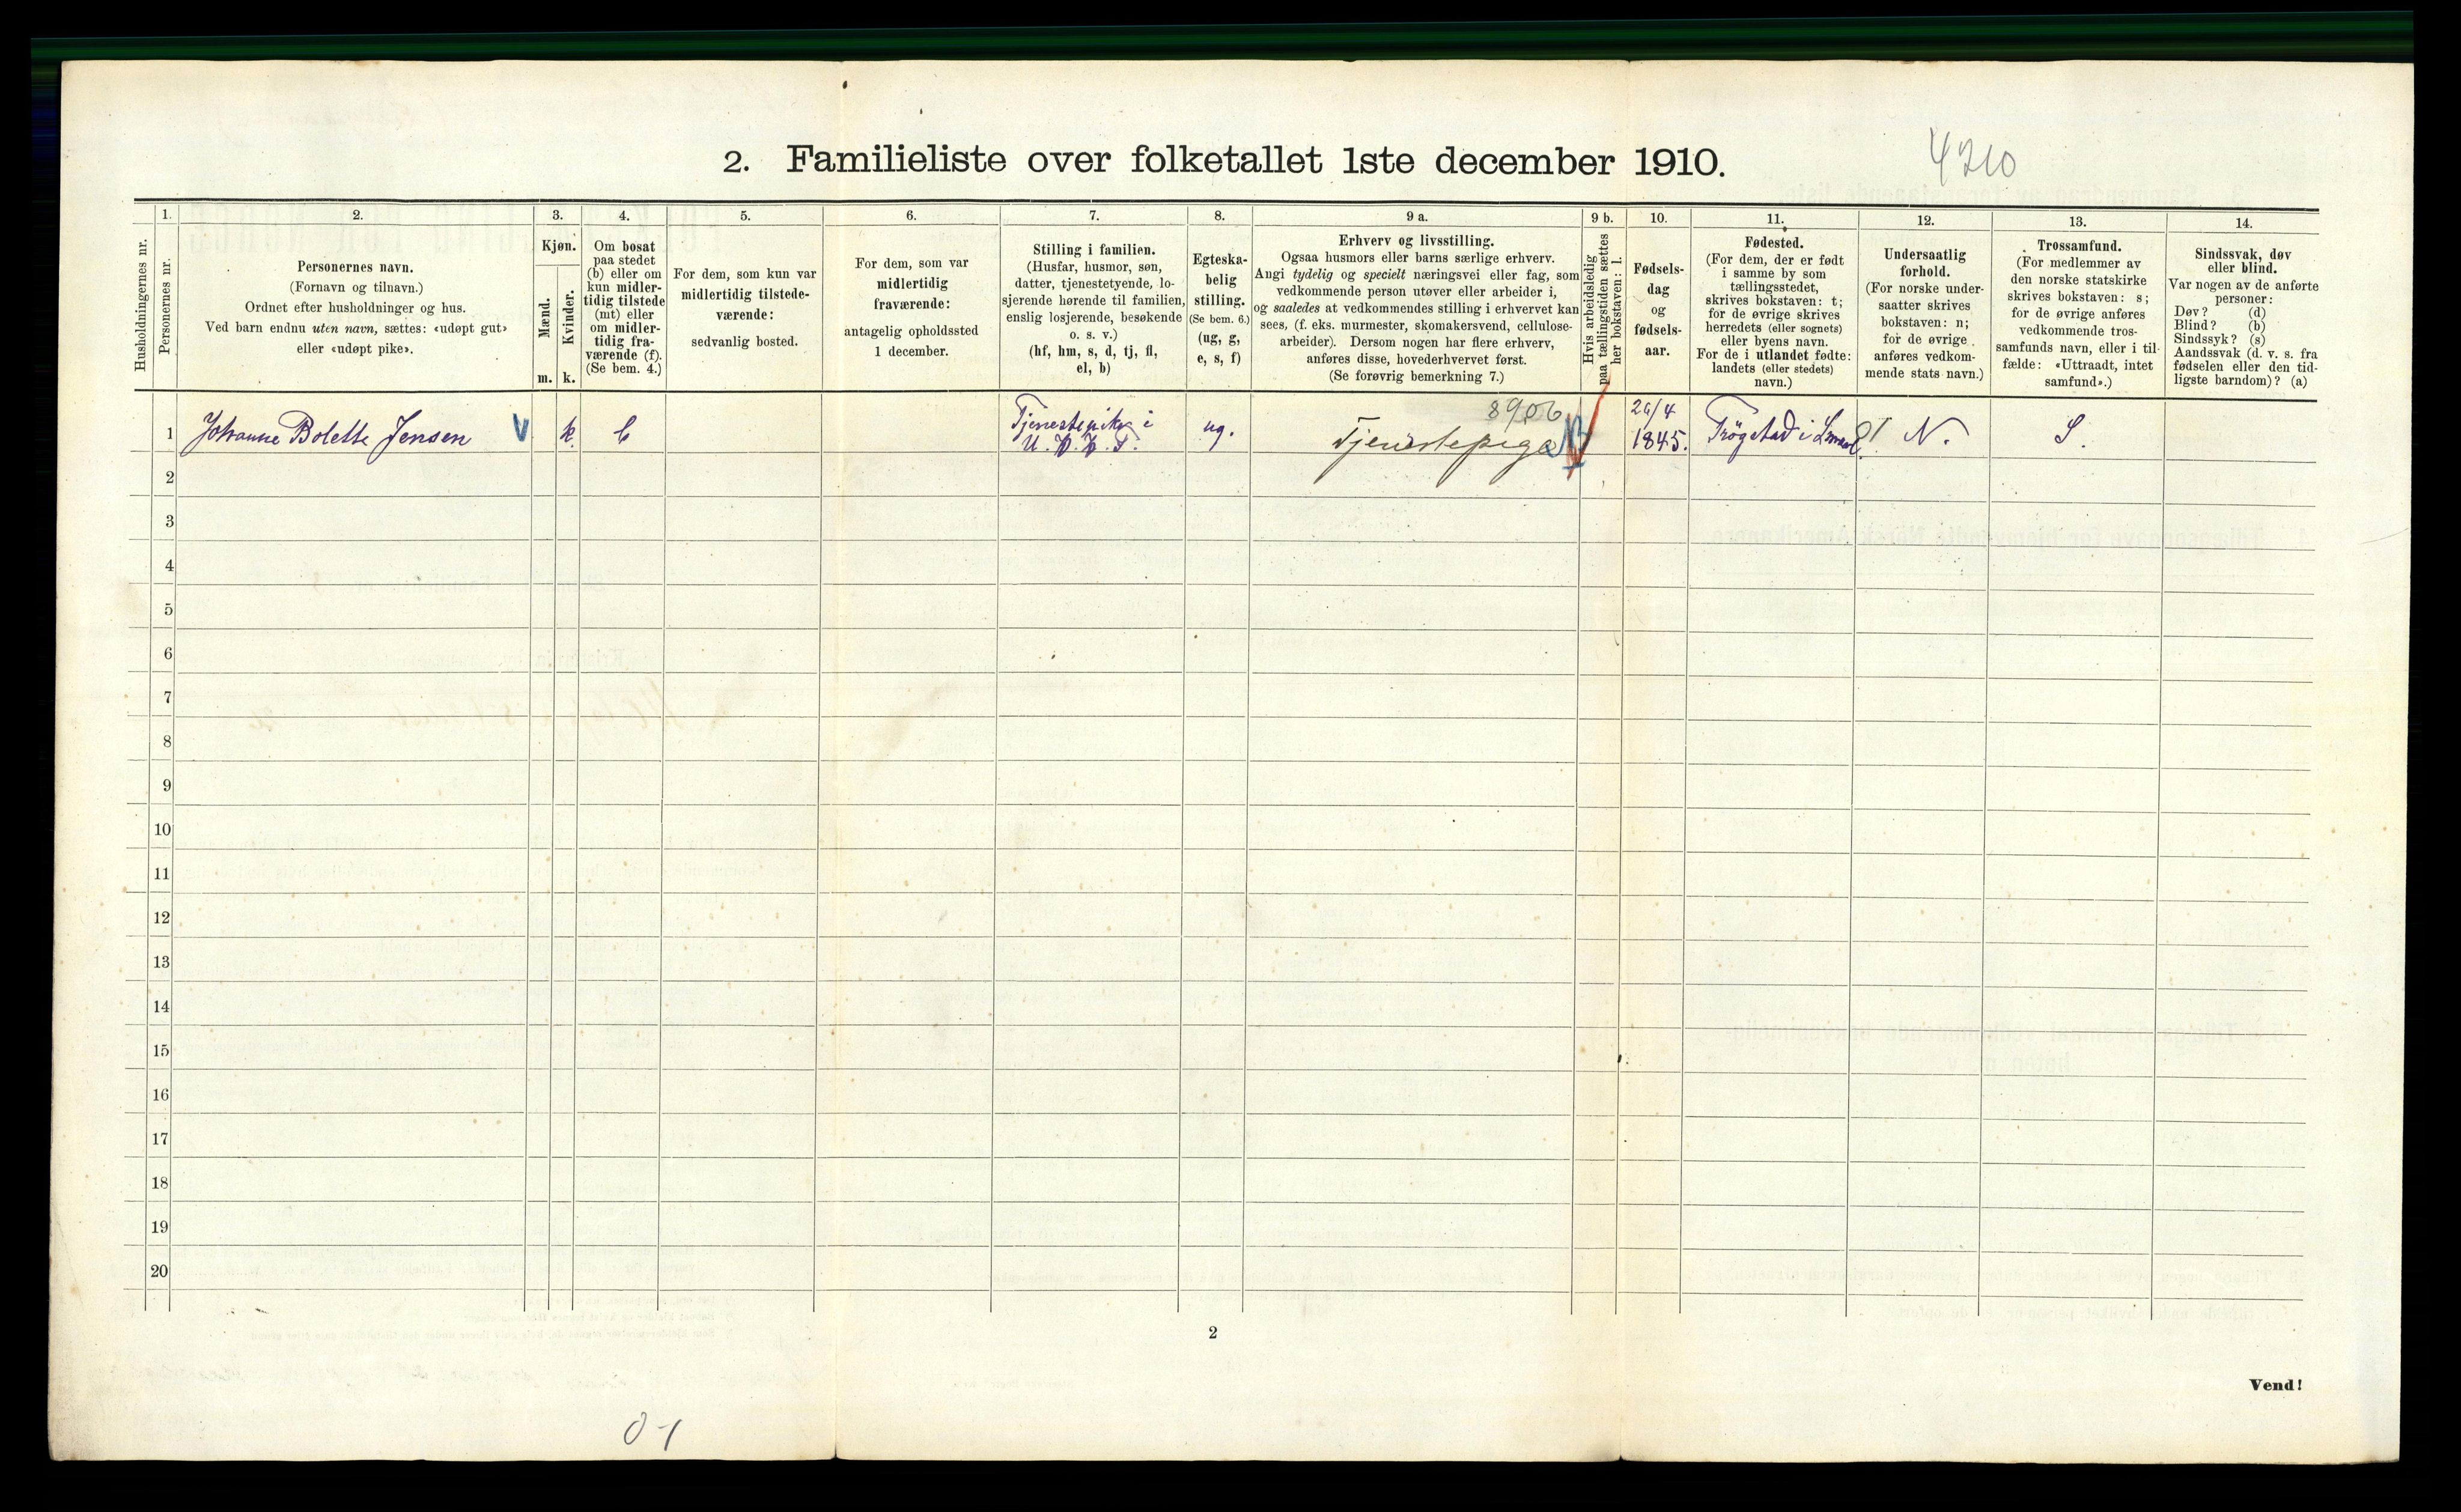 2. Familieliste over folketallet 1ste december 1910.
4210
Husholdningernes nr.
1.
Personernes nr.
2.
Personernes navn.
(Fornavn og tilnavn.)
Ordnet efter husholdninger og hus.
Ved barn endnu uten navn, sættes: «udøpt gut»
eller «udøpt pike».
3.
Kjøn.
Mænd.
Kvinder.
m. k.
4.
Om bosat
paa stedet
(b) eller om
kun midler-
tidig tilstede
(mt) eller
om midler-
tidig fra-
værende (f).
(Se bem. 4.)
5.
For dem, som kun var
midlertidig tilstede-
værende:
sedvanlig bosted.
6.
For dem, som var
midlertidig
fraværende:
antagelig opholdssted
1 december.
7.
Stilling i familien.
(Husfar, husmor, søn,
datter, tjenestetyende, lo-
sjerende hørende til familien,
enslig losjerende, besøkende
o. s. v.)
(hf, hm, s, d, tj, fl,
el, b)
8.
Egteska-
belig
stilling.
(Se bem. 6.)
(ug, g,
e, s, f)
9 a.
Erhverv og livsstilling.
Ogsaa husmors eller barns særlige erhverv.
Angi tydelig og specielt næringsvei eller fag, som
vedkommende person utøver eller arbeider i,
og saaledes at vedkommendes stilling i erhvervet kan
sees, (f. eks. murmester, skomakersvend, cellulose-
arbeider). Dersom nogen har flere erhverv,
anføres disse, hovederhvervet først.
(Se forøvrig bemerkning 7.)
9 b.
Hvis arbeidsledig
paa tællingstiden sættes
her bokstaven: l.
10.
Fødsels-
dag
og
fødsels-
aar.
11.
Fødested.
(For dem, der er født
i samme by som
tællingsstedet,
skrives bokstaven: t;
for de øvrige skrives
herredets (eller sognets)
eller byens navn.
For de i utlandet fødte:
landets (eller stedets)
navn.)
12.
Undersaatlig
forhold.
(For norske under-
saatter skrives
bokstaven: n;
for de øvrige
anføres vedkom-
mende stats navn.)
13.
Trossamfund.
(For medlemmer av
den norske statskirke
skrives bokstaven: s;
for de øvrige anføres
vedkommende tros-
samfunds navn, eller i til-
fælde: «Uttraadt, intet
samfund».)
14.
Sindssvak, døv
eller blind.
Var nogen av de anførte
personer:
Døv? (d)
Blind? (b)
Sindssyk? (s)
Aandssvak (d. v. s. fra
fødselen eller den tid-
ligste barndom)? (a)
1 Johanne Bolette Jensen V k. b Tjenestepike i ug. 8906 Tjenestepige 1845. Trøgstad i 01 N. S.
2
3
4
5
6
7
8
9
10
11
12
13
14
15
16
17
18
19
20
2
Vend!
0-1